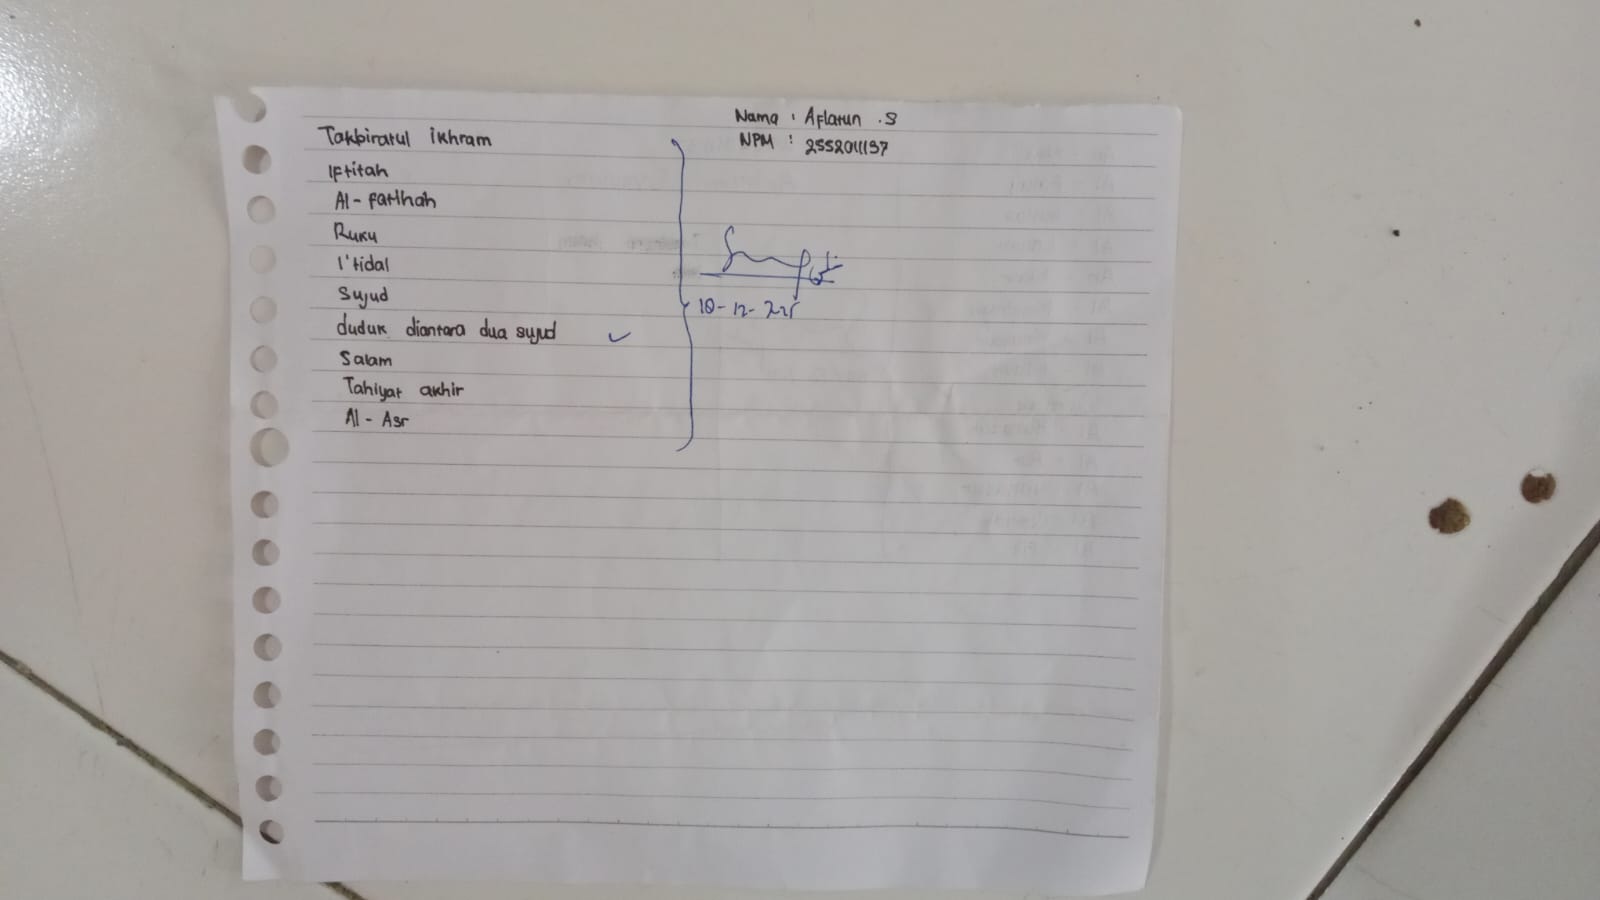 Nama : Aflatun .S
NPM : 2552011137
Takbiratul ikhram
Iftitah
Al - fatihah
Ruku
I'tidal
Sujud
duduk diantara dua sujud ✓
Salam
Tahiyat akhir
Al - Asr
10-12-225